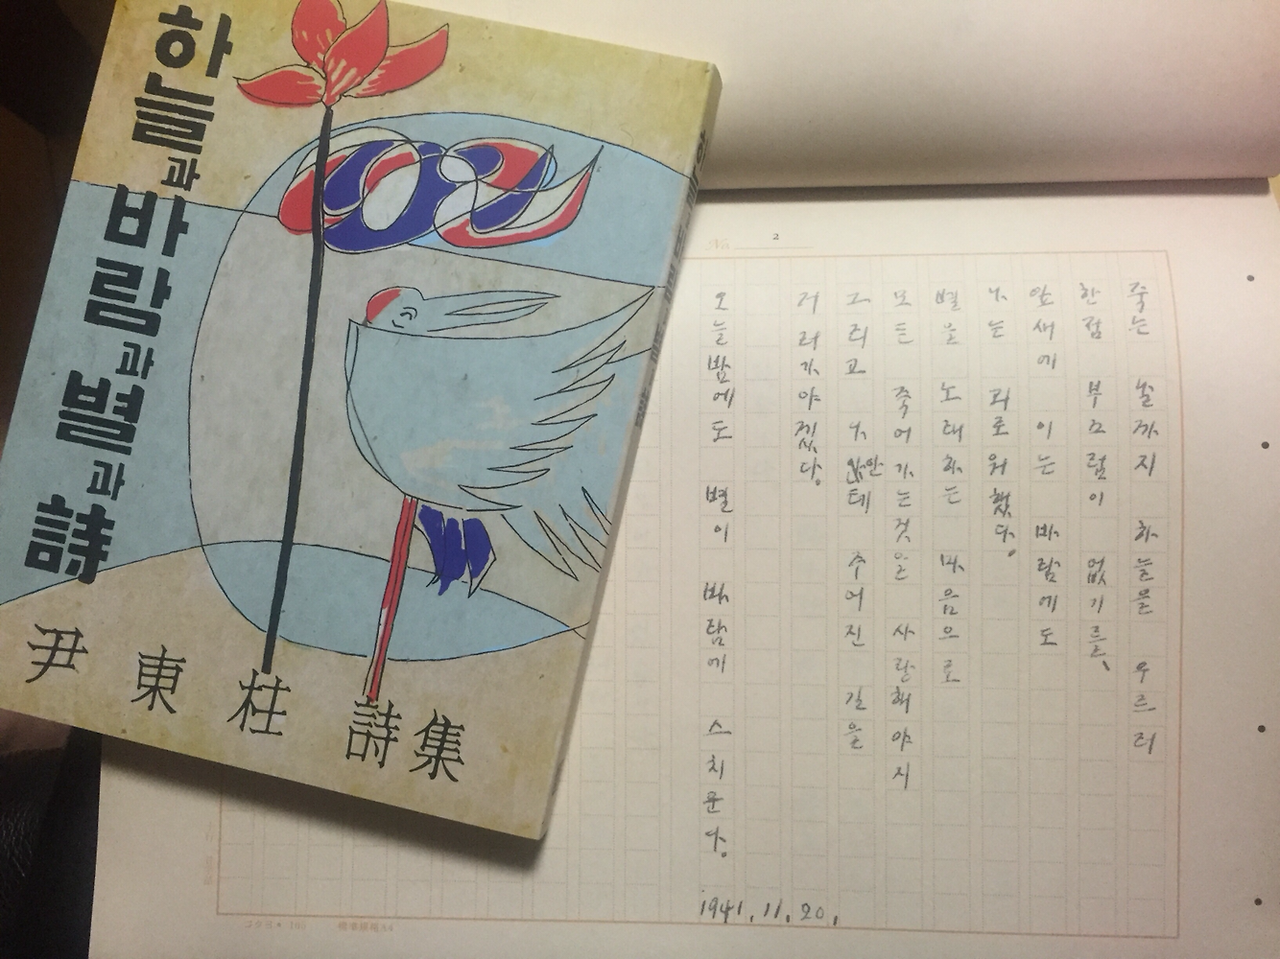 하늘과
바람과
별과
詩
尹東柱 詩集
No. 2
죽는 날까지 하늘을 우르러
한점 부끄럼이 없기를、
잎새에 이는 바람에도
나는 괴로워했다.
별을 노래하는 마음으로
모든 죽어가는것을 사랑해야지
그리고 나안테 주어진 길을
거러가야겠다.
오늘밤에도 별이 바람에 스치운다.
1941.11.20.
標準規格A4